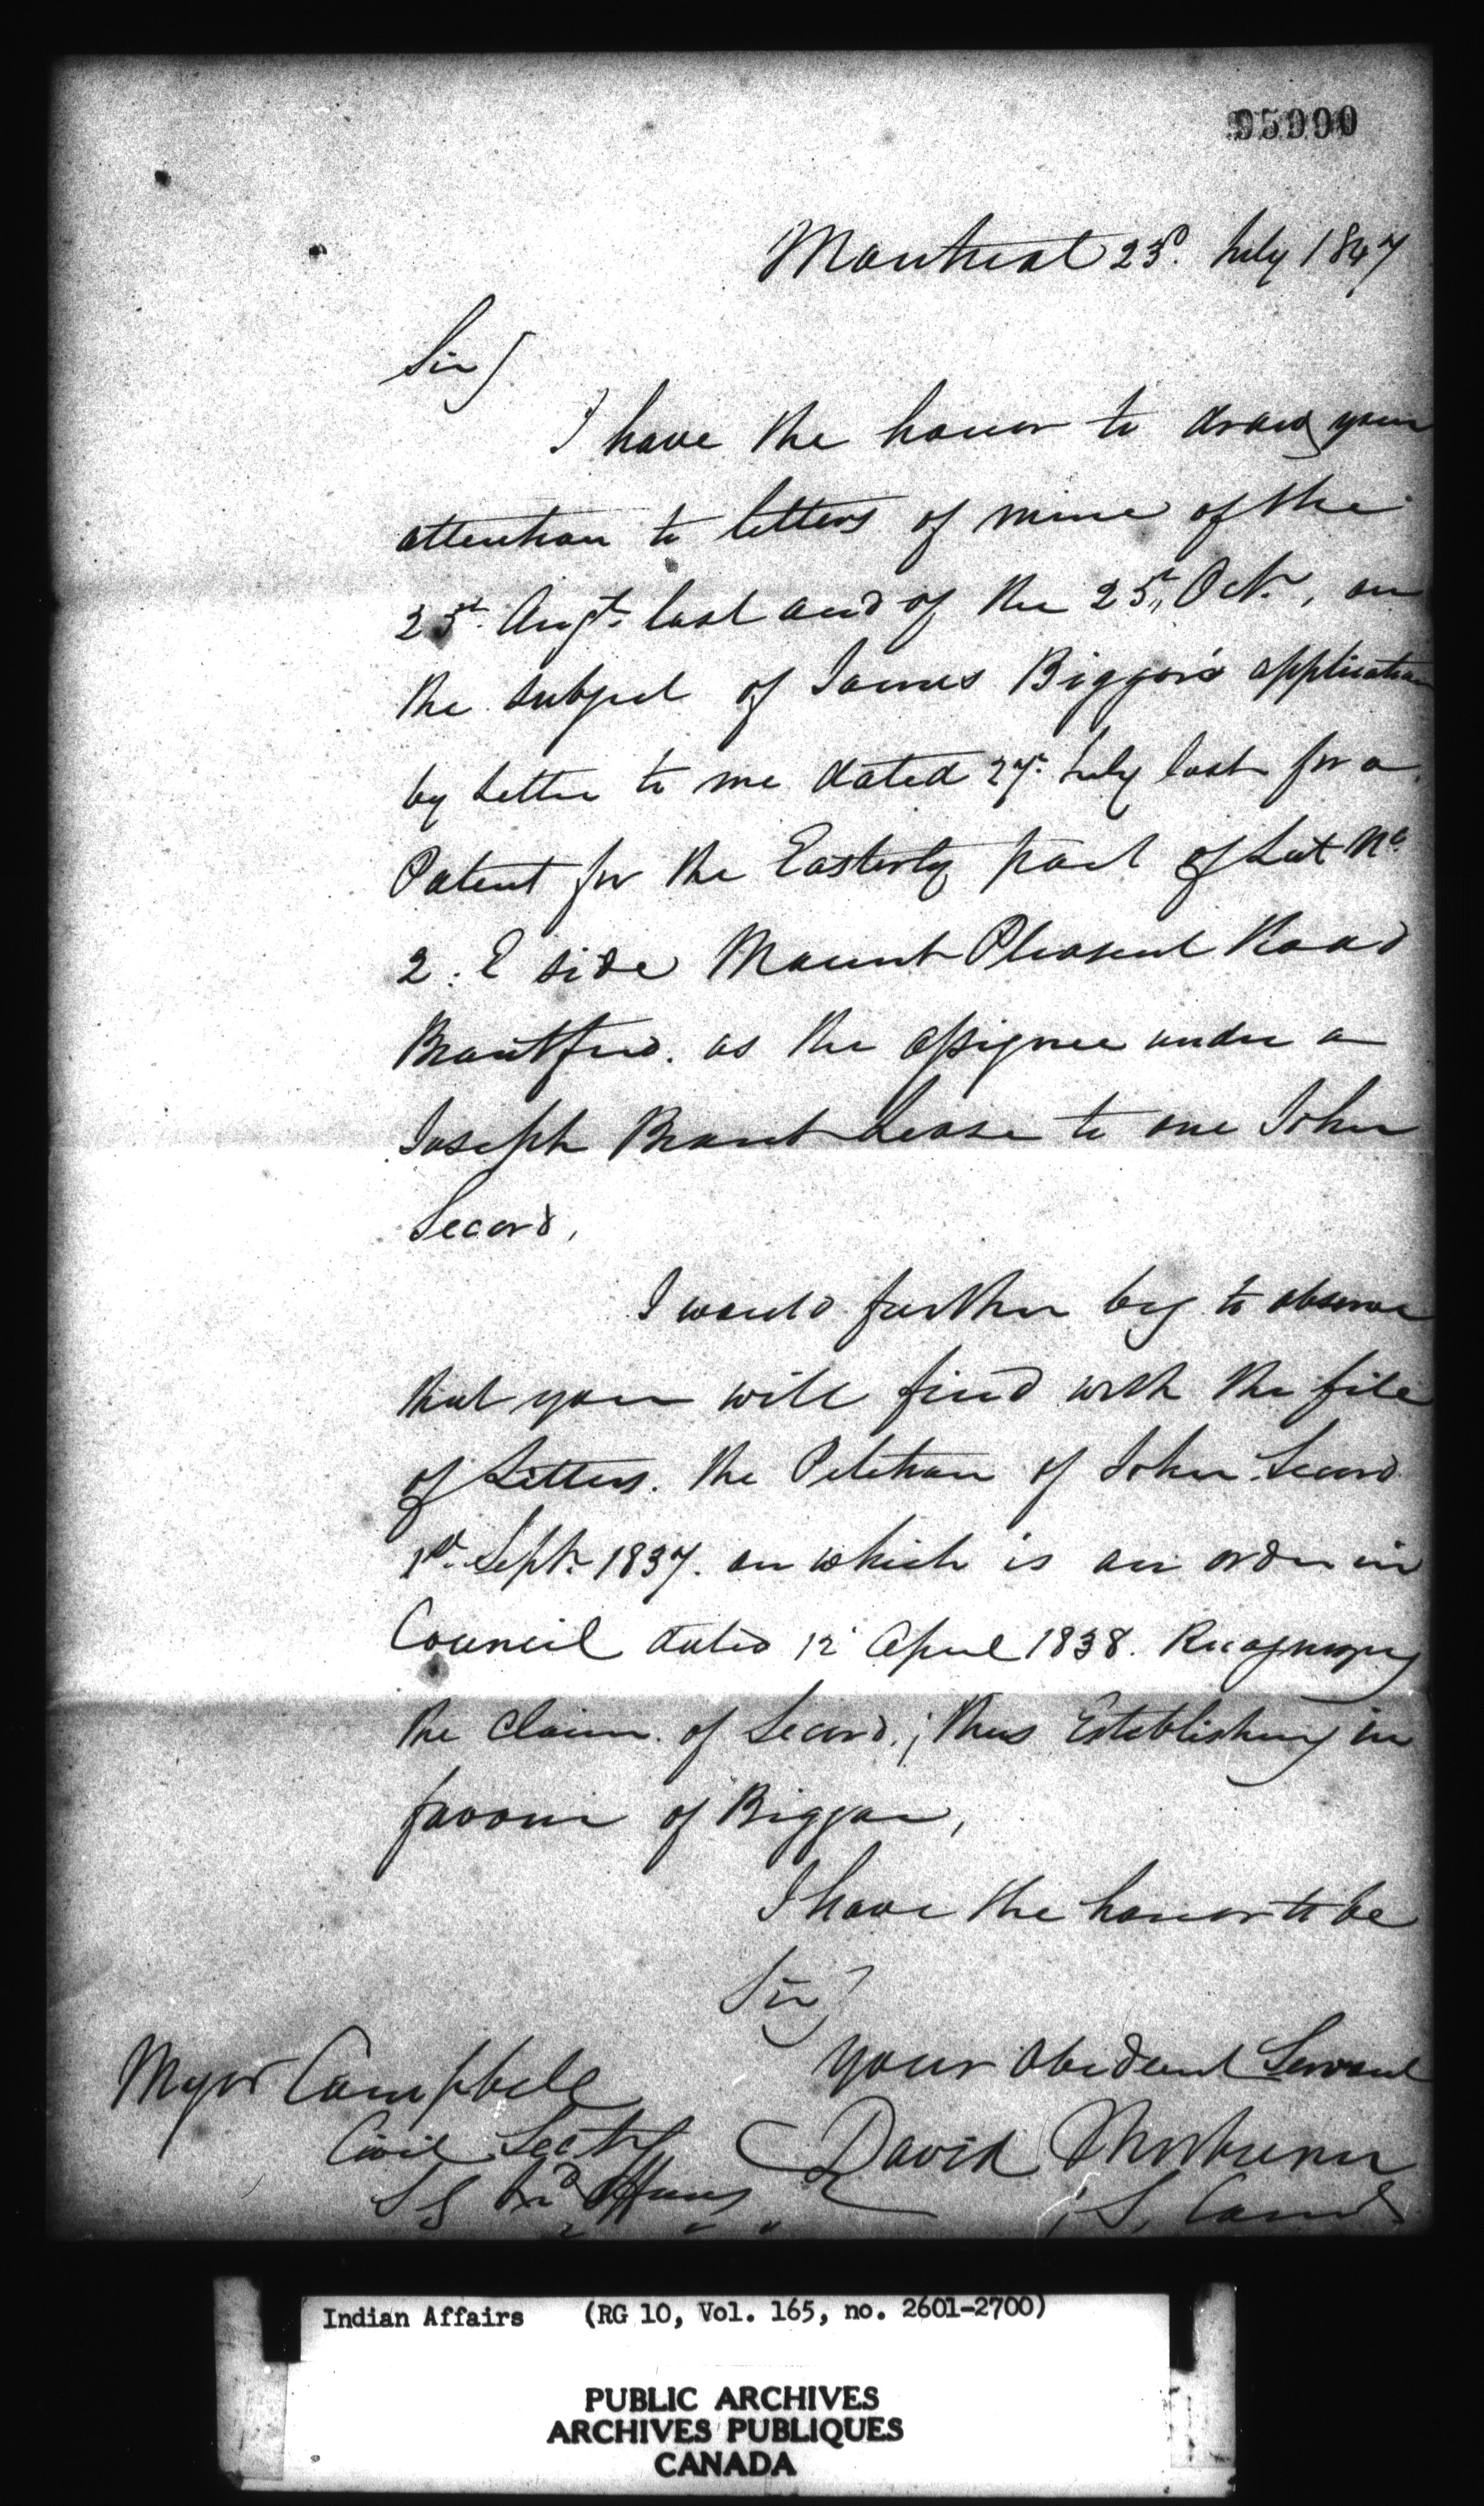 95990
Montreal 23d. July 1847
Sir
I have the honor to draw your
attention to letters of mine of the
25th. Augt. last and of the 25th, Octr., on
the subject of James Biggar's application
by Letter to me dated 27th. July last for a
Patent for the Easterly part of Lot No.
2. E side Mount Pleasant Road
Brantford. as the assignee under a
Joseph Brant Lease to one John
Secord,
I would further beg to observe
that you will find with the file
of Letters. the Petition of John Secord
1st. Septr. 1837. on which is an order in
Council dated 12 April 1838. Recognizing
the claim. of Secord.; thus Establishing in
favour of Biggar,
I have the honor to be
Sir
Your Obedient Servant
David Thorburn
Major Campbell
Civil Secty
S G Ind Affairs
Indian Affairs (RG 10, Vol. 165, no. 2601-2700)
PUBLIC ARCHIVES
ARCHIVES PUBLIQUES
CANADA